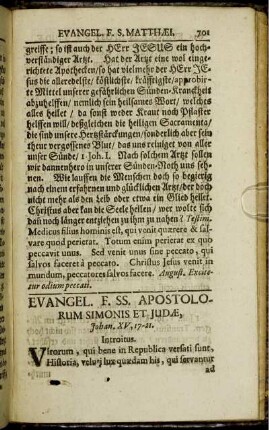 EVANGEL. F. S. MATTHÆI. 701
greiffe; so ist auch der HErr JESUS ein hoch-
verständiger Artzt. Hat der Artzt eine wol einge-
richtete Apothecken/ so hat vielmehr der HErr JE-
sus die alleredelste/ köstlichste/ kräfftigste/ approbir-
te Mittel unserer gefährlichen Sünden-Kranckheit
abzuhelffen/ nemlich sein heilsames Wort/ welches
alles heilet/ da sonst weder Kraut noch Pflaster
helffen will/ deßgleichen die heiligen Sacramenta/
die sind unsere Hertzstärckungen/ sonderlich aber sein
theur vergossenes Blut/ das uns reiniget von aller
unser Sünde/ 1 Joh. I. Nach solchem Artzt sollen
wir dannenhero in unserer Sünden-Noth uns seh-
nen. Wie lauffen die Menschen doch so begierig
nach einem erfahrnen und glücklichen Artzt/ der doch
nicht mehr als den leib oder etwa ein Glied heilet.
Christus aber kan die Seele heilen/ wer wolte sich
dan noch länger entziehen zu ihm zu nahen? Testim.
Medicus filius hominis est, qui venit quærere & sal-
vare quod perierat. Totum enim perierat ex quo
peccavit unus. Sed venit unus sine peccato, qui
salvos faceret à peccato. Christus Jesus venit in
mundum, peccatores salvos facere. August. Excite-
tur odium peccati.
EVANGEL. F. SS. APOSTOLO-
RUM SIMONIS ET JUDÆ,
Johan. XV, 17-21.
Introitus.
Virorum, qui bene in Republica versati sunt,
Historia, velut lux quædam his, qui servantur
ad